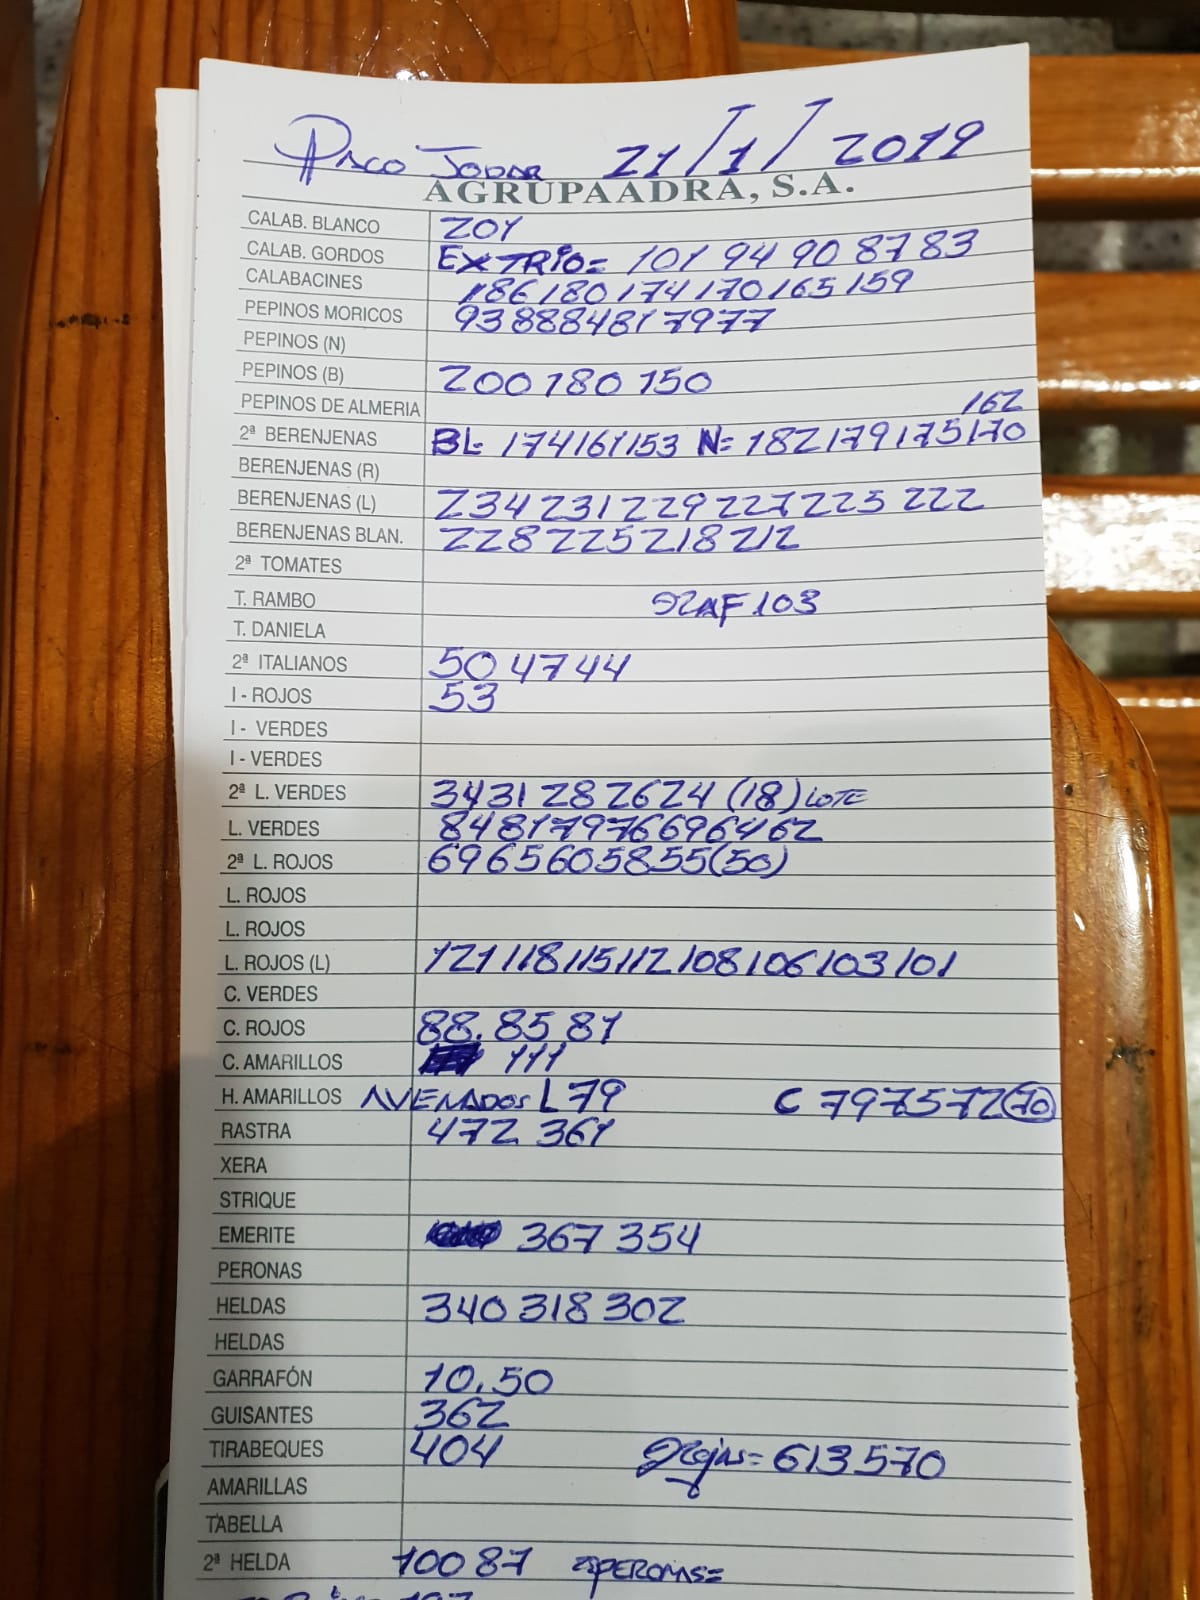 Paco Jodar 21/1/2019
AGRUPAADRA, S.A.
CALAB. BLANCO 201
CALAB. GORDOS EXTRIO= 101 94 90 87 83
CALABACINES 186 180 174 170 165 159
PEPINOS MORICOS 93 88 84 81 79 77
PEPINOS (N)
PEPINOS (B) 200 180 150
PEPINOS DE ALMERIA 162
2ª BERENJENAS BL= 174 161 153 N= 182 179 175 170
BERENJENAS (R)
BERENJENAS (L) 234 231 229 227 225 222
BERENJENAS BLAN. 228 225 218 212
2ª TOMATES
T. RAMBO RAF 103
T. DANIELA
2ª ITALIANOS 50 47 44
I - ROJOS 53
I - VERDES
I - VERDES
2ª L. VERDES 34 31 28 26 24 (18) LOTE
L. VERDES 84 81 79 76 69 64 62
2ª L. ROJOS 69 65 60 58 55 (50)
L. ROJOS
L. ROJOS
L. ROJOS (L) 121 118 115 112 108 106 103 101
C. VERDES
C. ROJOS 88. 85 81
C. AMARILLOS 111
H. AMARILLOS AVENADOS L 79 C 79 75 72 70
RASTRA 472 361
XERA
STRIQUE
EMERITE 367 354
PERONAS
HELDAS 340 318 302
HELDAS
GARRAFÓN 10.50
GUISANTES 362
TIRABEQUES 404 Rojas= 613 570
AMARILLAS
TABELLA
2ª HELDA 100 87 PERONAS=